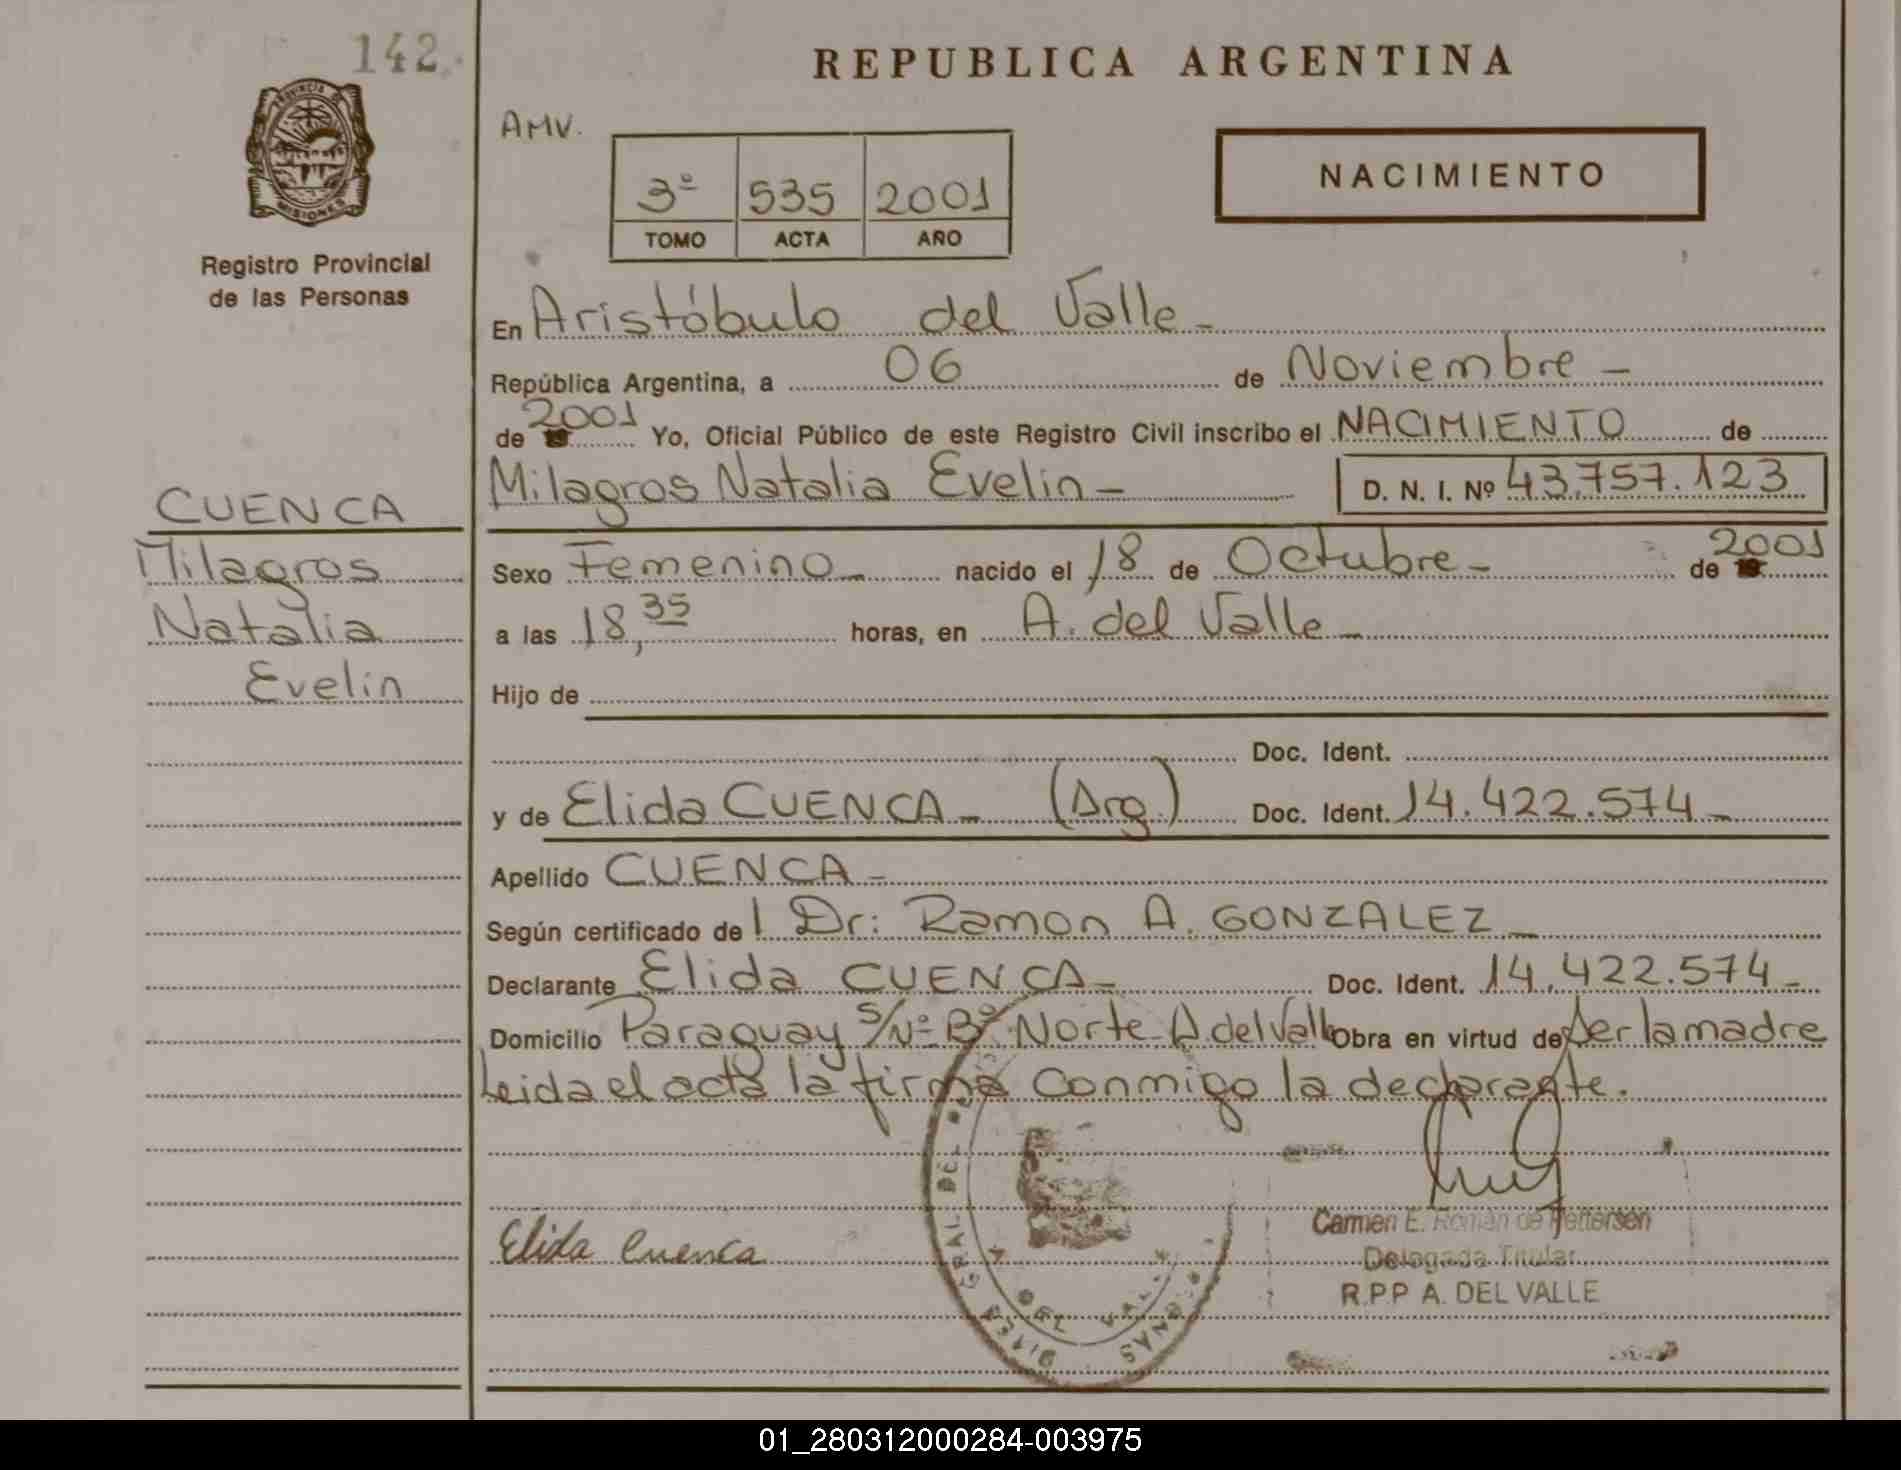 142
REPUBLICA ARGENTINA
PROVINCIA DE
MISIONES
Registro Provincial
de las Personas
AMV.
3º 535 2001
TOMO ACTA AÑO
NACIMIENTO
En Aristóbulo del Valle -
República Argentina, a 06 de Noviembre -
de 19 2001 Yo, Oficial Público de este Registro Civil inscribo el NACIMIENTO de
Milagros Natalia Evelin - D. N. I. Nº 43.757.123
CUENCA
Milagros
Natalia
Evelin
Sexo Femenino - nacido el 18 de Octubre - de 19 2001
a las 18,35 horas, en A. del Valle -
Hijo de
Doc. Ident.
y de Elida CUENCA - (Arg.) Doc. Ident. 14.422.574 -
Apellido CUENCA -
Según certificado de l Dr: Ramon A. GONZALEZ -
Declarante Elida CUENCA - Doc. Ident. 14.422.574 -
Domicilio Paraguay S/Nº Bº Norte A. del Valle Obra en virtud de ser la madre
Leida el acta la firma conmigo la declarante.
Elida Cuenca
GRAL DEL
DEL VALLE
Carmen E. Román de Pettersen
Delegada Titular
R.P.P A. DEL VALLE
01_280312000284-003975